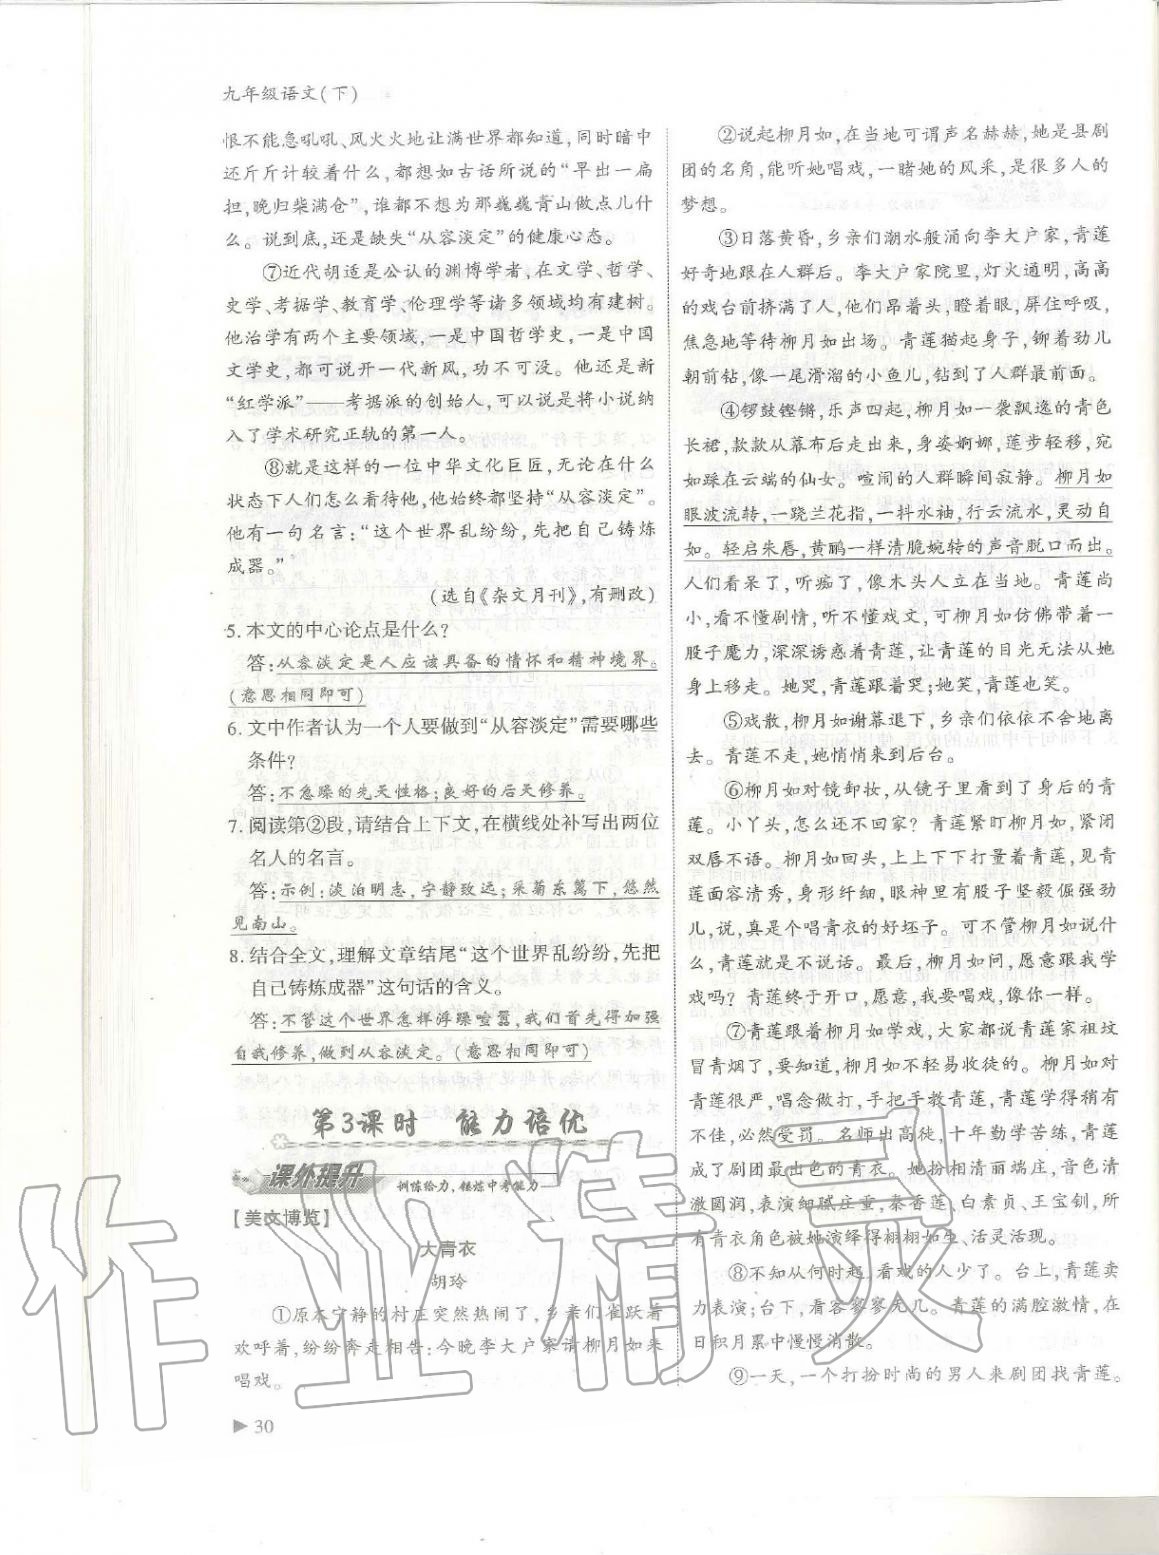 九年级语文(下)
恨不能急吼吼、风火火地让满世界都知道,同时暗中
还斤斤计较着什么,都想如古话所说的“早出一扁
担,晚归柴满仓”,谁都不想为那巍巍青山做点儿什
么。说到底,还是缺失“从容淡定”的健康心态。
⑦近代胡适是公认的渊博学者,在文学、哲学、
史学、考据学、教育学、伦理学等诸多领域均有建树。
他治学有两个主要领域,一是中国哲学史,一是中国
文学史,都可说开一代新风,功不可没。他还是新
“红学派”——考据派的创始人,可以说是将小说纳
入了学术研究正轨的第一人。
⑧就是这样的一位中华文化巨匠,无论在什么
状态下人们怎么看待他,他始终都坚持“从容淡定”。
他有一句名言:“这个世界乱纷纷,先把自己铸炼
成器。”
(选自《杂文月刊》,有删改)
5. 本文的中心论点是什么?
答:从容淡定是人应该具备的情怀和精神境界。
(意思相同即可)
6. 文中作者认为一个人要做到“从容淡定”需要哪些
条件?
答:不急躁的先天性格;良好的后天修养。
7. 阅读第②段,请结合上下文,在横线处补写出两位
名人的名言。
答:示例:淡泊明志,宁静致远;采菊东篱下,悠然
见南山。
8. 结合全文,理解文章结尾“这个世界乱纷纷,先把
自己铸炼成器”这句话的含义。
答:不管这个世界怎样浮躁喧嚣,我们首先得加强
自我修养,做到从容淡定。(意思相同即可)
第3课时 能力培优
课外提升 训练给力,锤炼中考能力
【美文博览】
大青衣
胡玲
①原本宁静的村庄突然热闹了,乡亲们雀跃着
欢呼着,纷纷奔走相告:今晚李大户家请柳月如来
唱戏。
30
②说起柳月如,在当地可谓声名赫赫,她是县剧
团的名角,能听她唱戏,一睹她的风采,是很多人的
梦想。
③日落黄昏,乡亲们潮水般涌向李大户家,青莲
好奇地跟在人群后。李大户家院里,灯火通明,高高
的戏台前挤满了人,他们昂着头,瞪着眼,屏住呼吸,
焦急地等待柳月如出场。青莲猫起身子,铆着劲儿
朝前钻,像一尾滑溜的小鱼儿,钻到了人群最前面。
④锣鼓铿锵,乐声四起,柳月如一袭飘逸的青色
长裙,款款从幕布后走出来,身姿婀娜,莲步轻移,宛
如踩在云端的仙女。喧闹的人群瞬间寂静。柳月如
眼波流转,一跷兰花指,一抖水袖,行云流水,灵动自
如。轻启朱唇,黄鹂一样清脆婉转的声音脱口而出。
人们看呆了,听痴了,像木头人立在当地。青莲尚
小,看不懂剧情,听不懂戏文,可柳月如仿佛带着一
股子魔力,深深诱惑着青莲,让青莲的目光无法从她
身上移走。她哭,青莲跟着哭;她笑,青莲也笑。
⑤戏散,柳月如谢幕退下,乡亲们依依不舍地离
去。青莲不走,她悄悄来到后台。
⑥柳月如对镜卸妆,从镜子里看到了身后的青
莲。小丫头,怎么还不回家?青莲紧盯柳月如,紧闭
双唇不语。柳月如回头,上上下下打量着青莲,见青
莲面容清秀,身形纤细,眼神里有股子坚毅倔强劲
儿,说,真是个唱青衣的好坯子。可不管柳月如说什
么,青莲就是不说话。最后,柳月如问,愿意跟我学
戏吗?青莲终于开口,愿意,我要唱戏,像你一样。
⑦青莲跟着柳月如学戏,大家都说青莲家祖坟
冒青烟了,要知道,柳月如不轻易收徒的。柳月如对
青莲很严,唱念做打,手把手教青莲,青莲学得稍有
不佳,必然受罚。名师出高徒,十年勤学苦练,青莲
成了剧团最出色的青衣。她扮相清丽端庄,音色清
澈圆润,表演细腻庄重,秦香莲、白素贞、王宝钏,所
有青衣角色被她演绎得栩栩如生、活灵活现。
⑧不知从何时起,看戏的人少了。台上,青莲卖
力表演;台下,看客寥寥无几。青莲的满腔激情,在
日积月累中慢慢消散。
⑨一天,一个打扮时尚的男人来剧团找青莲。
作业精灵